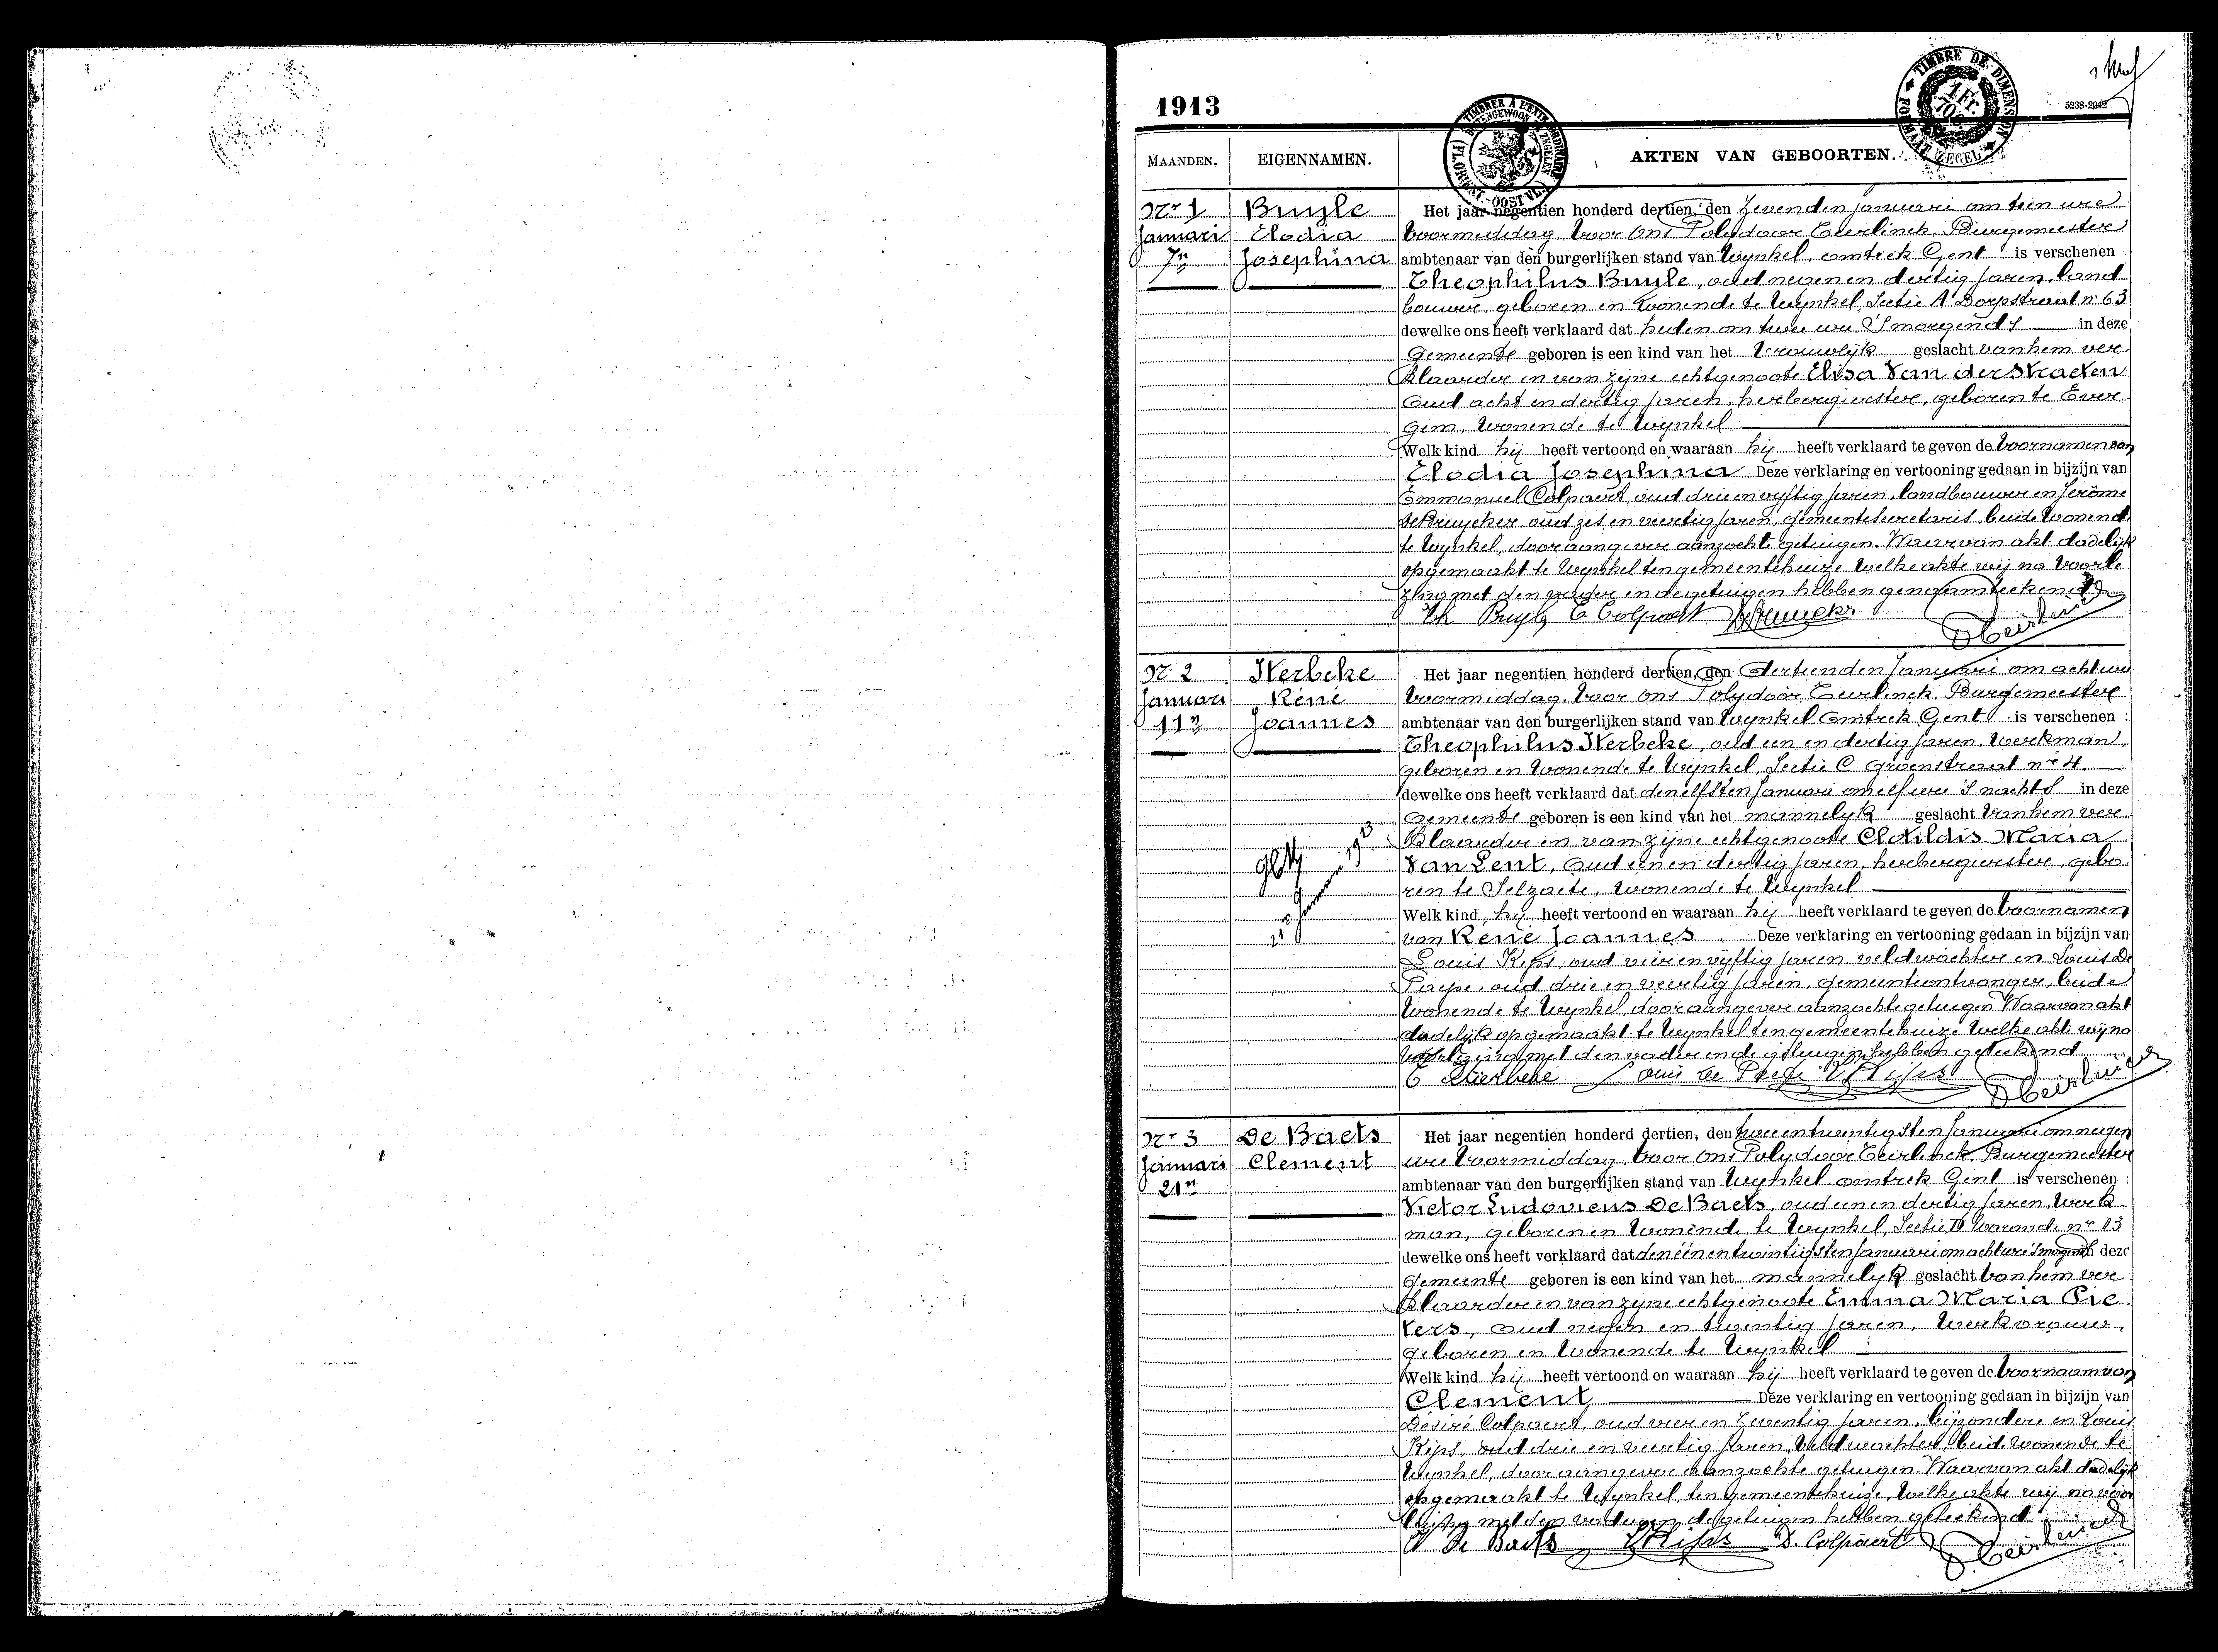 1913
5238-2912
TIMBRE DE DIMENSION
1 Fr.
FORMAAT ZEGEL
MAANDEN. EIGENNAMEN. AKTEN VAN GEBOORTEN.
Nr 1 Buyle Het jaar negentien honderd dertien, den Zevenden Januari om tien ure
Januari Elodia Voormiddag, Voor Ons Polydoor Eeirlinck, Burgemeester
7n Josephina ambtenaar van den burgerlijken stand van Wynkel, omtrek Gent is verschenen
Theophilus Buyle, oud negen en dertig jaren, land
bouwer, geboren en wonende te Wynkel, Sectie A Dorpstraat nr 63
dewelke ons heeft verklaard dat heden om twee ure 's morgends in deze
Gemeente geboren is een kind van het Vrouwelyk geslacht van hem ver
klaarder en van zijne echtgenoote Elisa Van der Straeten
Oud acht en dertig jaren, herbergierstere, geboren te Ever
gem, wonende te Wynkel
Welk kind hij heeft vertoond en waaraan hij heeft verklaard te geven de voornamen van
Elodia Josephina Deze verklaring en vertooning gedaan in bijzijn van
Emmanuel Colpaert, oud drie en vyftig jaren, landbouwer en Jerôme
De Bruycker oud zes en veertig jaren, gemeentesecretaris beide wonende
te Wynkel, door aangever aanzochte getuigen. Waarvan akt dadelijk
opgemaakt te Wynkel ten gemeentehuize welke akte wij na voorle
zing met den vader en de getuigen hebben genaamteekend
Th Buyle E Colpaert
Nr 2 Sterbeke Het jaar negentien honderd dertien, den dertienden Januari om acht ure
Januari René Voormiddag, Voor Ons Polydoor Eeirlinck, Burgemeester
11n Joannes ambtenaar van den burgerlijken stand van Wynkel Omtrek Gent is verschenen :
Theophilus Sterbeke, oud een en dertig jaren, werkman,
geboren en wonende te Wynkel, Sectie C Groenstraat nr 4.
dewelke ons heeft verklaard dat den elfsten Januari om elf ure 's nachts in deze
Gemeente geboren is een kind van het mannelyk geslacht van hem ver
klaarder en van zijne echtgenoote Clotildis Maria
Van Lent, Oud een en dertig jaren, herbergierstere, gebo
ren te Selzaete, wonende te Wynkel
Januari 1913
Welk kind hij heeft vertoond en waaraan hij heeft verklaard te geven de voornamen
van René Joannes Deze verklaring en vertooning gedaan in bijzijn van
Louis Kips, oud vier en vyftig jaren veldwachter en Louis De
Paepe, oud drie en veertig jaren, gemeenteontvanger, beide
wonende te Wynkel, door aangever aanzochte getuigen Waarvan akt
dadelijk opgemaakt te Wynkel ten gemeentehuize welke akt wij na
voorlezing met den vader en de getuigen hebben geteekend
Louis De Paepe L Kips
Nr 3 De Baets Het jaar negentien honderd dertien, den twee en twintigsten Januari om negen
Januari Clement ure Voormiddag, Voor Ons Polydoor Eeirlinck, Burgemeester
21n ambtenaar van den burgerlijken stand van Wynkel omtrek Gent is verschenen :
Victor Ludovicus De Baets, oud een en dertig jaren, werk
man, geboren en wonende te Wynkel, Sectie D Warande nr 13
dewelke ons heeft verklaard dat den één en twintigsten Januari om acht ure 's morgends in deze
Gemeente geboren is een kind van het mannelyk geslacht van hem ver
klaarder en van zyne echtgenoote Emma Maria Pie
ters, Oud negen en twintig jaren, werkvrouw,
geboren en wonende te Wynkel
Welk kind hij heeft vertoond en waaraan hij heeft verklaard te geven de voornaam van
Clement Deze verklaring en vertooning gedaan in bijzijn van
Désiré Colpaert, oud vier en zeventig jaren, bijzondere en Louis
Kips, oud drie en veertig jaren, veldwachter, beide wonende te
Wynkel, door aangever aanzochte getuigen. Waarvan akt dadelijk
opgemaakt te Wynkel, ten gemeentehuize, welke akte wij na voor
lezing met den vader en de getuigen hebben geteekend
V De Baets L Kips D. Colpaert